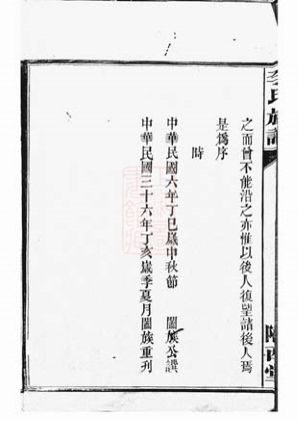 之而曾不能沿之亦惟以後人復望諸後人焉
是為序
時
中華民國六年丁巳歲中秋節 闔族公譔
中華民國三十六年丁亥歲季夏月闔族重刋
李氏族譜
隴西堂